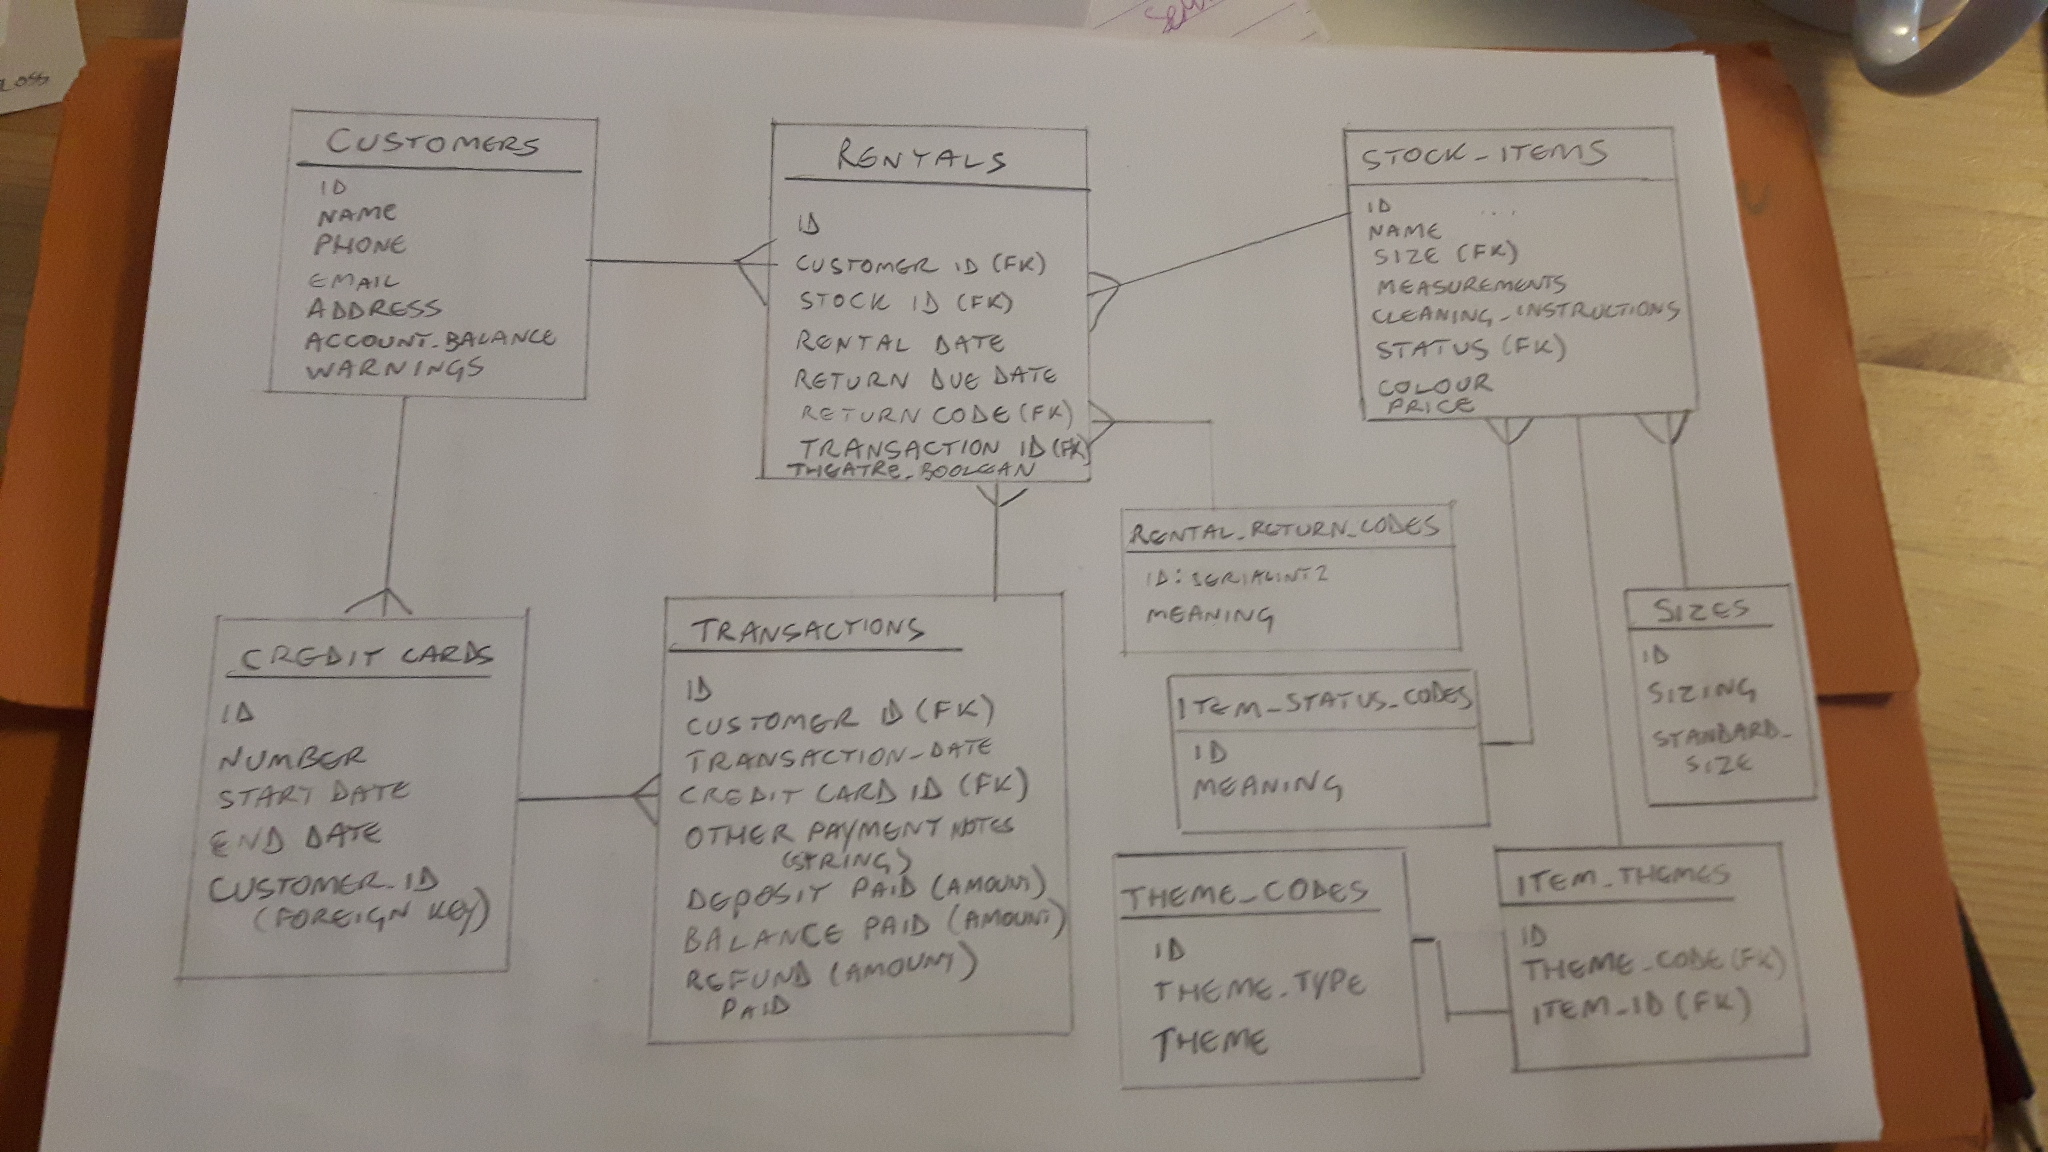 CUSTOMERS
ID
NAME
PHONE
EMAIL
ADDRESS
ACCOUNT_BALANCE
WARNINGS
RENTALS
ID
CUSTOMER ID (FK)
STOCK ID (FK)
RENTAL DATE
RETURN DUE DATE
RETURN CODE (FK)
TRANSACTION ID (FK)
THEATRE_BOOLEAN
STOCK_ITEMS
ID ...
NAME
SIZE (FK)
MEASUREMENTS
CLEANING_INSTRUCTIONS
STATUS (FK)
COLOUR
PRICE
CREDIT CARDS
ID
NUMBER
START DATE
END DATE
CUSTOMER_ID
(FOREIGN KEY)
TRANSACTIONS
ID
CUSTOMER ID (FK)
TRANSACTION_DATE
CREDIT CARD ID (FK)
OTHER PAYMENT NOTES
(STRING)
DEPOSIT PAID (AMOUNT)
BALANCE PAID (AMOUNT)
REFUND (AMOUNT)
PAID
RENTAL_RETURN_CODES
ID: SERIALINT2
MEANING
ITEM_STATUS_CODES
ID
MEANING
SIZES
ID
SIZING
STANDARD_
SIZE
THEME_CODES
ID
THEME_TYPE
THEME
ITEM_THEMES
ID
THEME_CODE (FK)
ITEM_ID (FK)